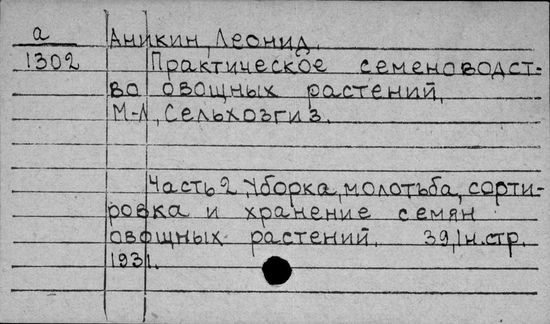 а
Аникин, Леонид.
1302
Практическое семеноводст-
во овощных растений.
М-Л, Сельхозгиз.
Часть 2 Уборка, молотьба, сорти-
ровка и хранение семян
овощных растений. 39,1н.стр.
1931.